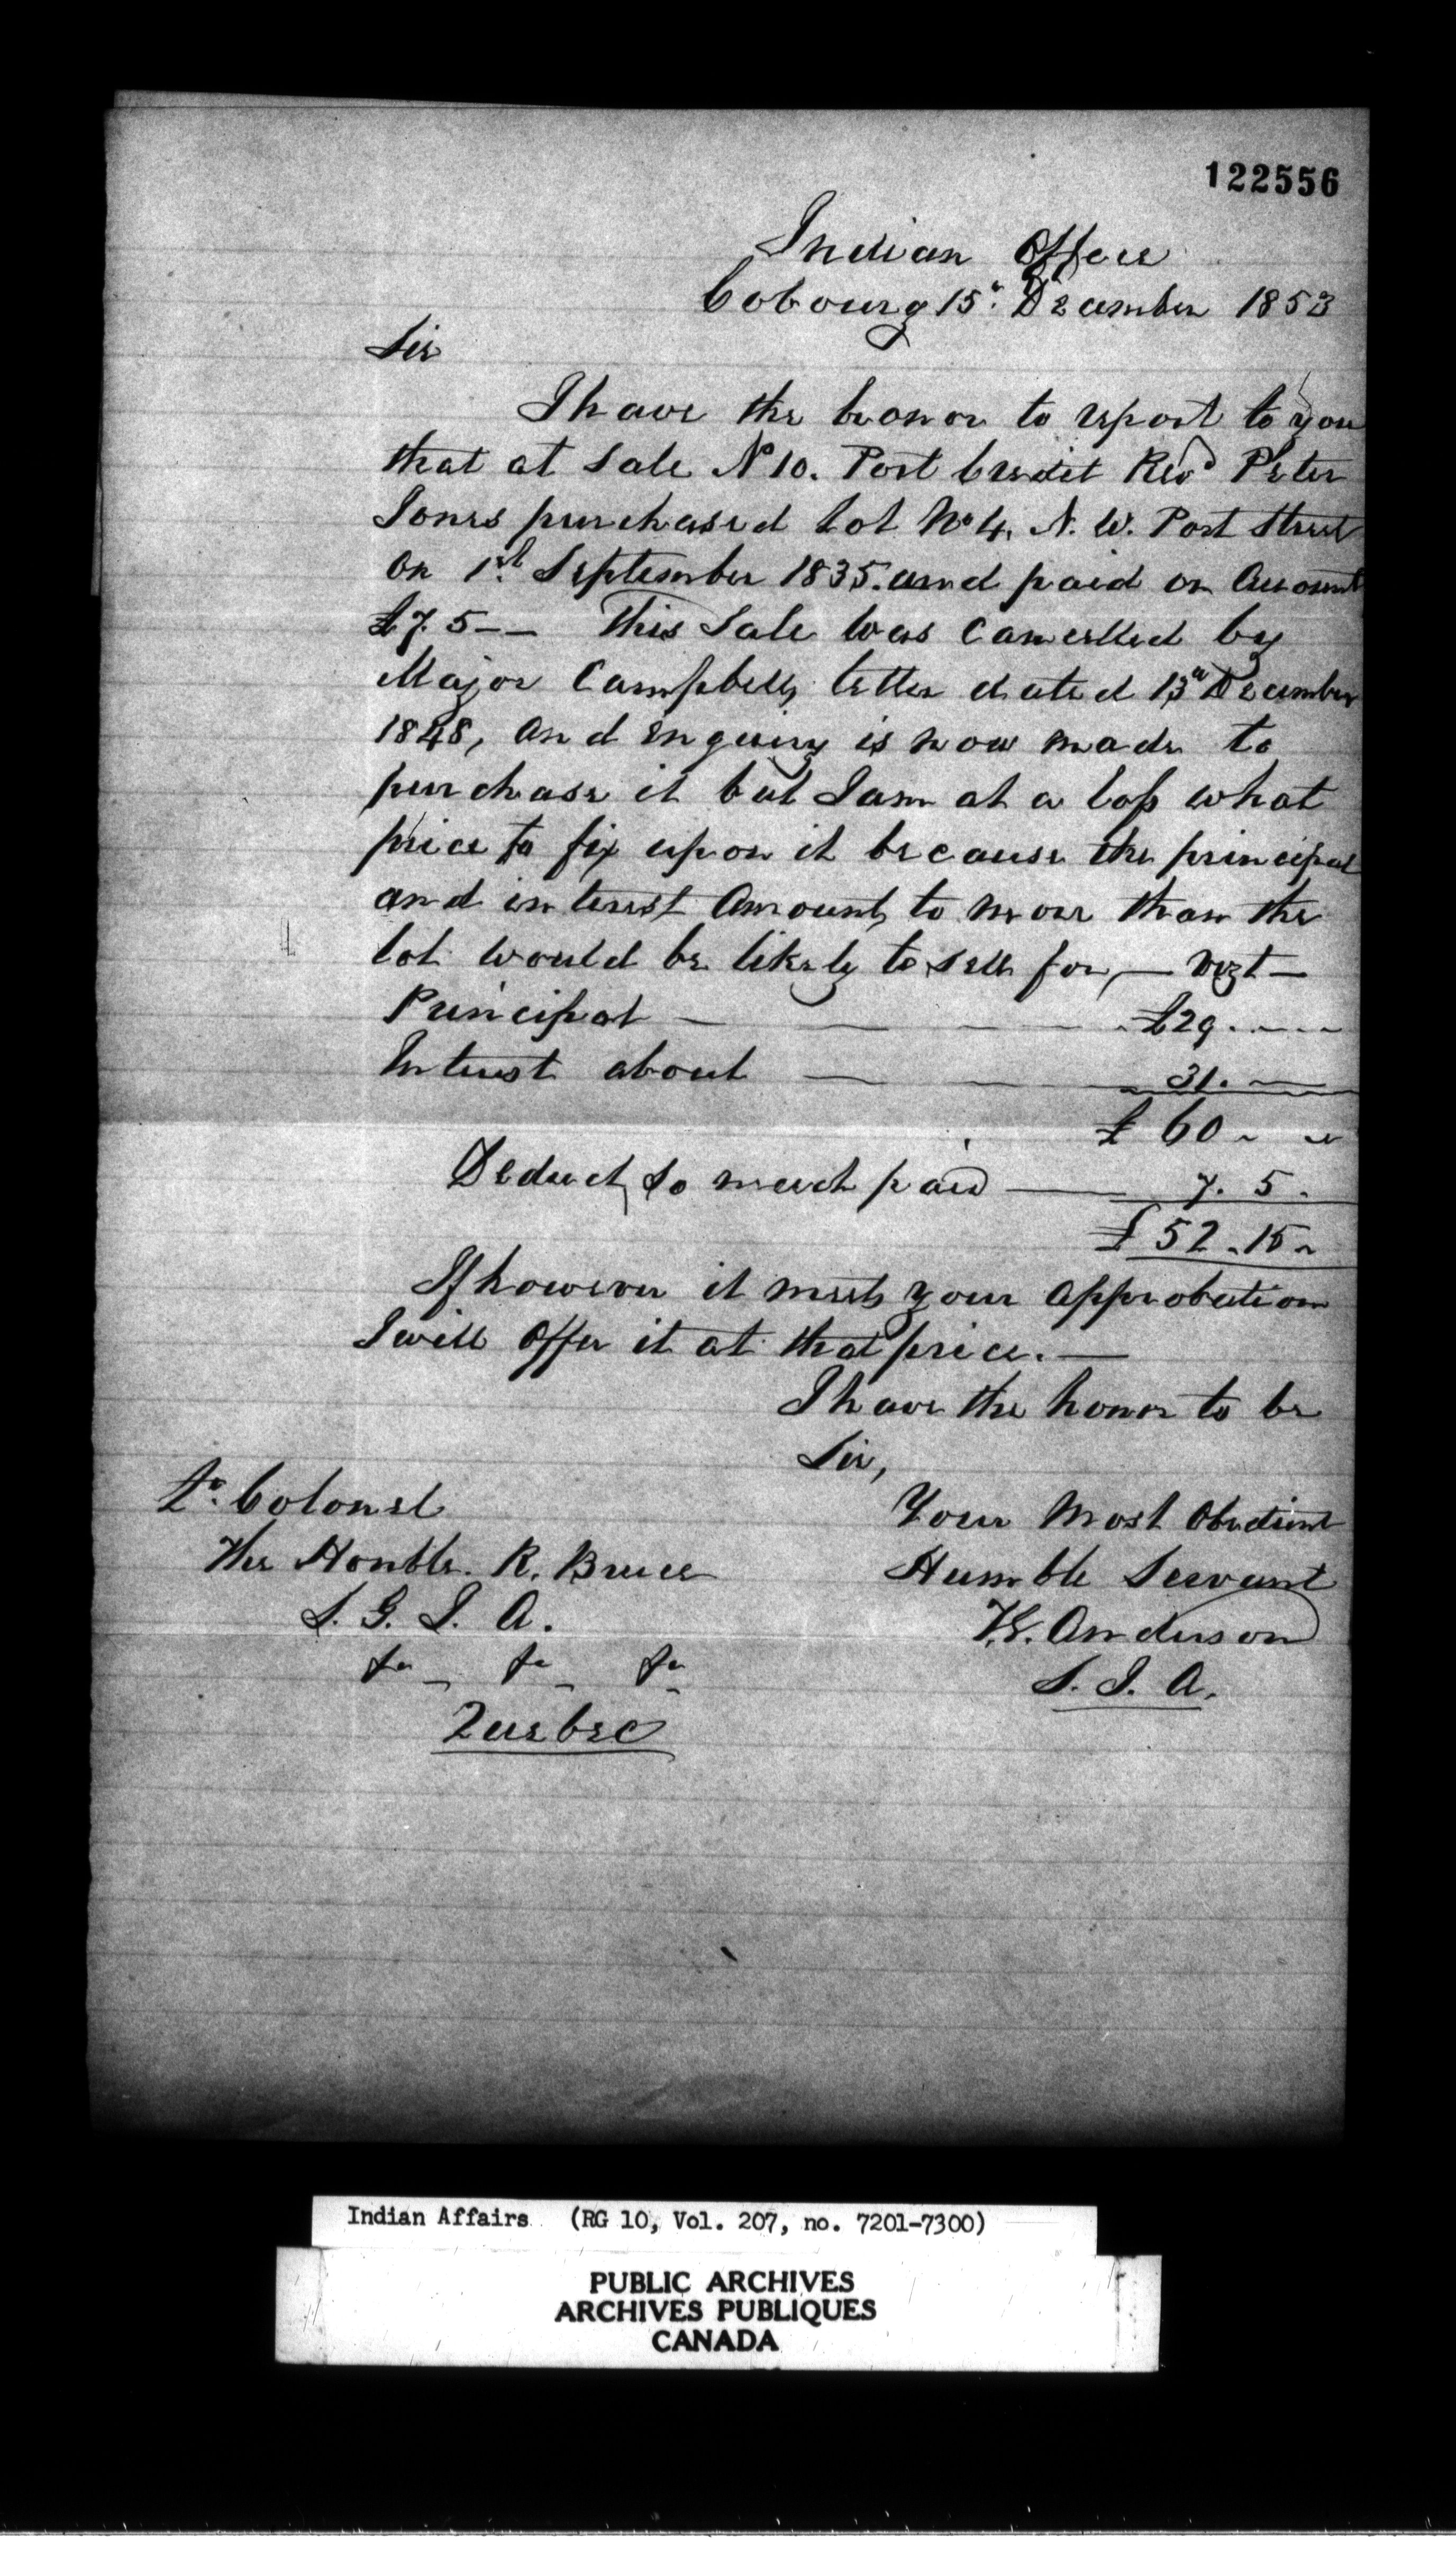 122556
Indian Office
Cobourg 15th December 1853
Sir
I have the honor to report to you
that at Sale No 10. Port Credit Revd Peter
Jones purchased Lot No 4, N. W. Port Street
on 1st September 1835. and paid on Account
£7. 5 - - This Sale was Cancelled by
Major Campbells letter dated 13th December
1848, and enquiry is now made to
purchase it but I am at a loss what
price to fix upon it because the principal
and interest Amounts to more than the
lot would be likely to sell for, — vizt —
Principal — — — — £29. - - -
Interest about — — — 31. —
£ 60 - -
Deduct, so much paid — 7. 5.
£ 52. 15 -
If however it meets your approbation
I will Offer it at that price. —
I have the honor to be
Sir,
Your Most Obedient
Humble Servant
T.G. Anderson
S. I. A.
Lt. Colonel
The Honble. R. Bruce
S. G. I. A.
&c &c &c
Quebec
Indian Affairs (RG 10, Vol. 207, no. 7201-7300)
PUBLIC ARCHIVES
ARCHIVES PUBLIQUES
CANADA